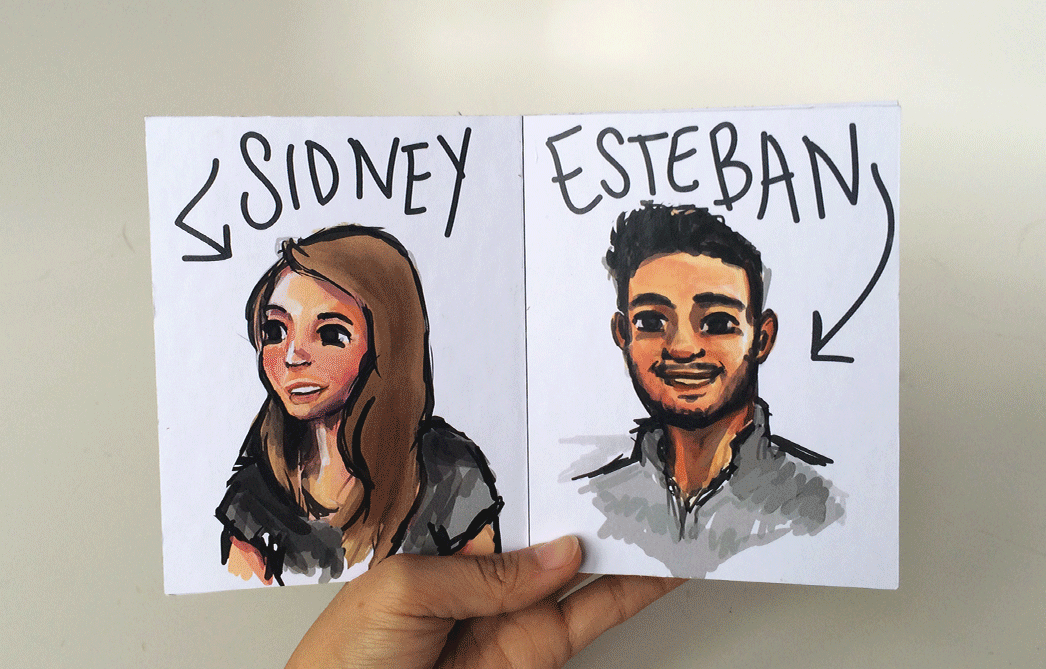 SIDNEY
ESTEBAN